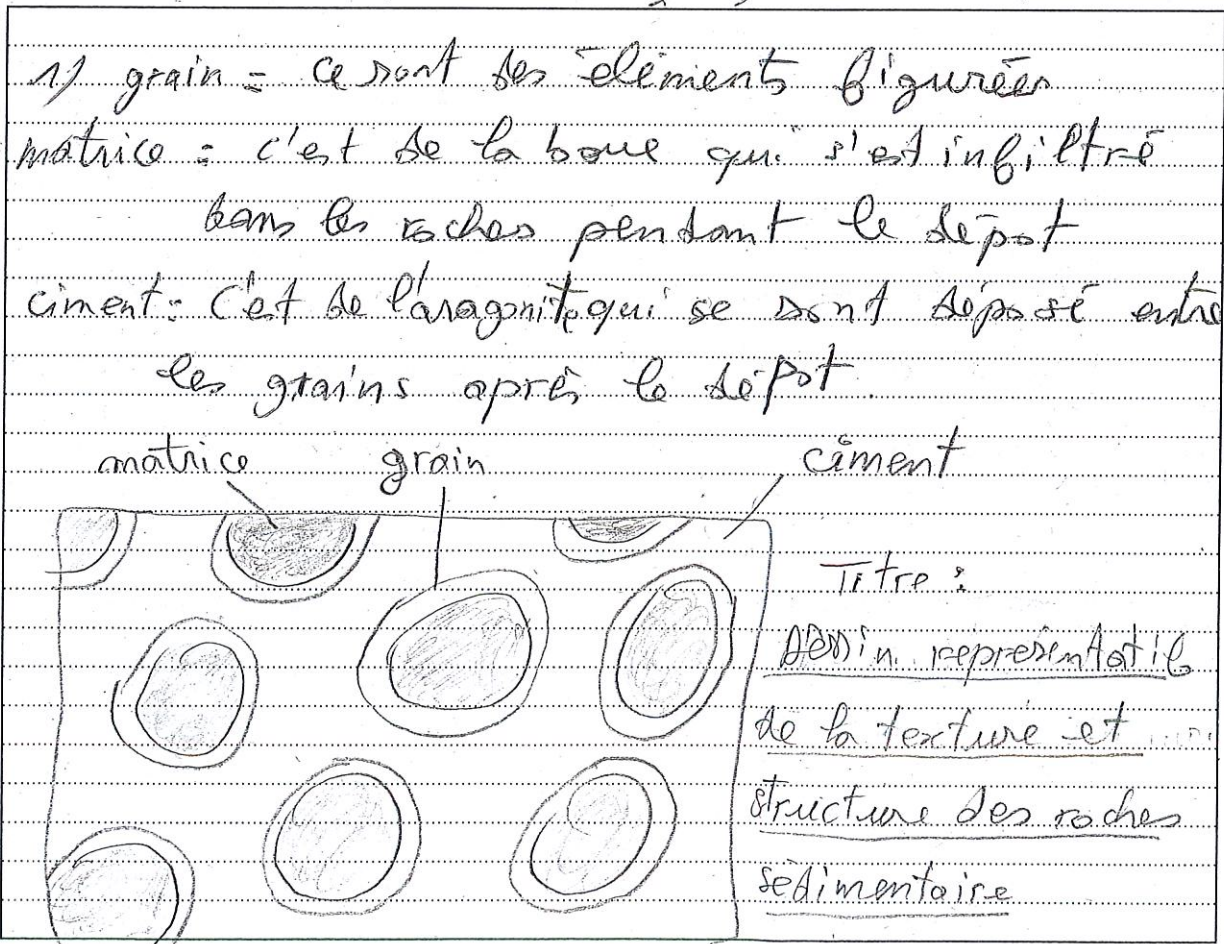 1) grain = ce sont des éléments figurées
matrice = c'est de la boue qui s'est infiltré
dans les roches pendant le dépot
ciment = C'est de l'aragonite qui se sont déposé entre
les grains après le dépot.
matrice grain ciment
Titre :
dessin representatif
de la texture et
structure des roches
sédimentaire